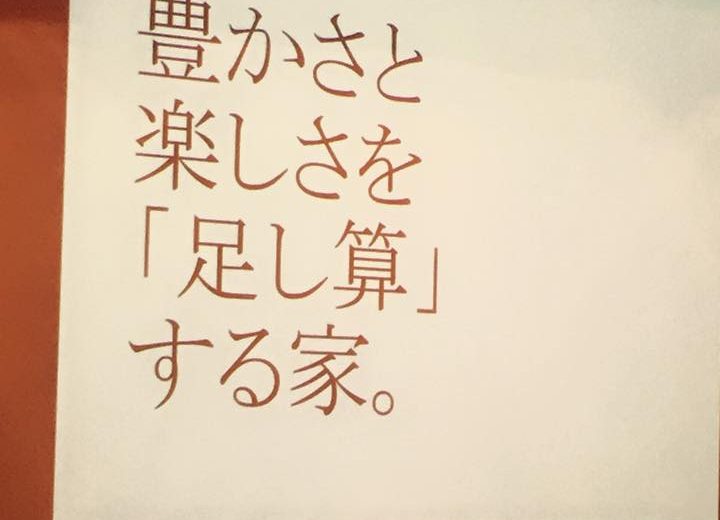 豊かさと
楽しさを
「足し算」
する家。